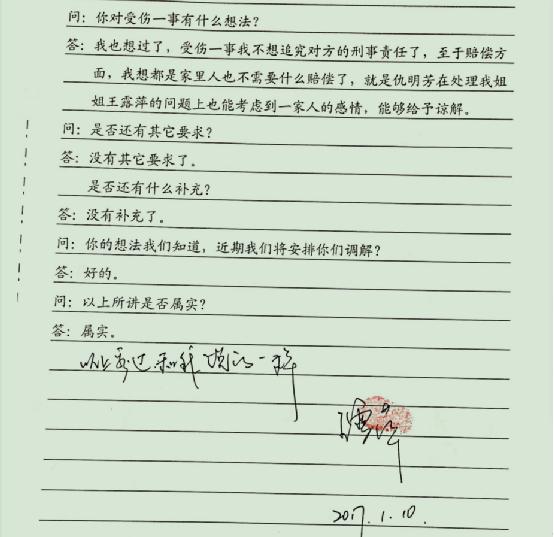 问：你对受伤一事有什么想法？
答：我也想过了，受伤一事我不想追究对方的刑事责任了，至于赔偿方
面，我想都是家里人也不需要什么赔偿了，就是仇明芳在处理我姐
姐王露萍的问题上也能考虑到一家人的感情，能够给予谅解。
问：是否还有其它要求？
答：没有其它要求了。
是否还有什么补充？
答：没有补充了。
问：你的想法我们知道，近期我们将安排你们调解？
答：好的。
问：以上所讲是否属实？
答：属实。
以上看过和我讲的一样
2017.1.10.